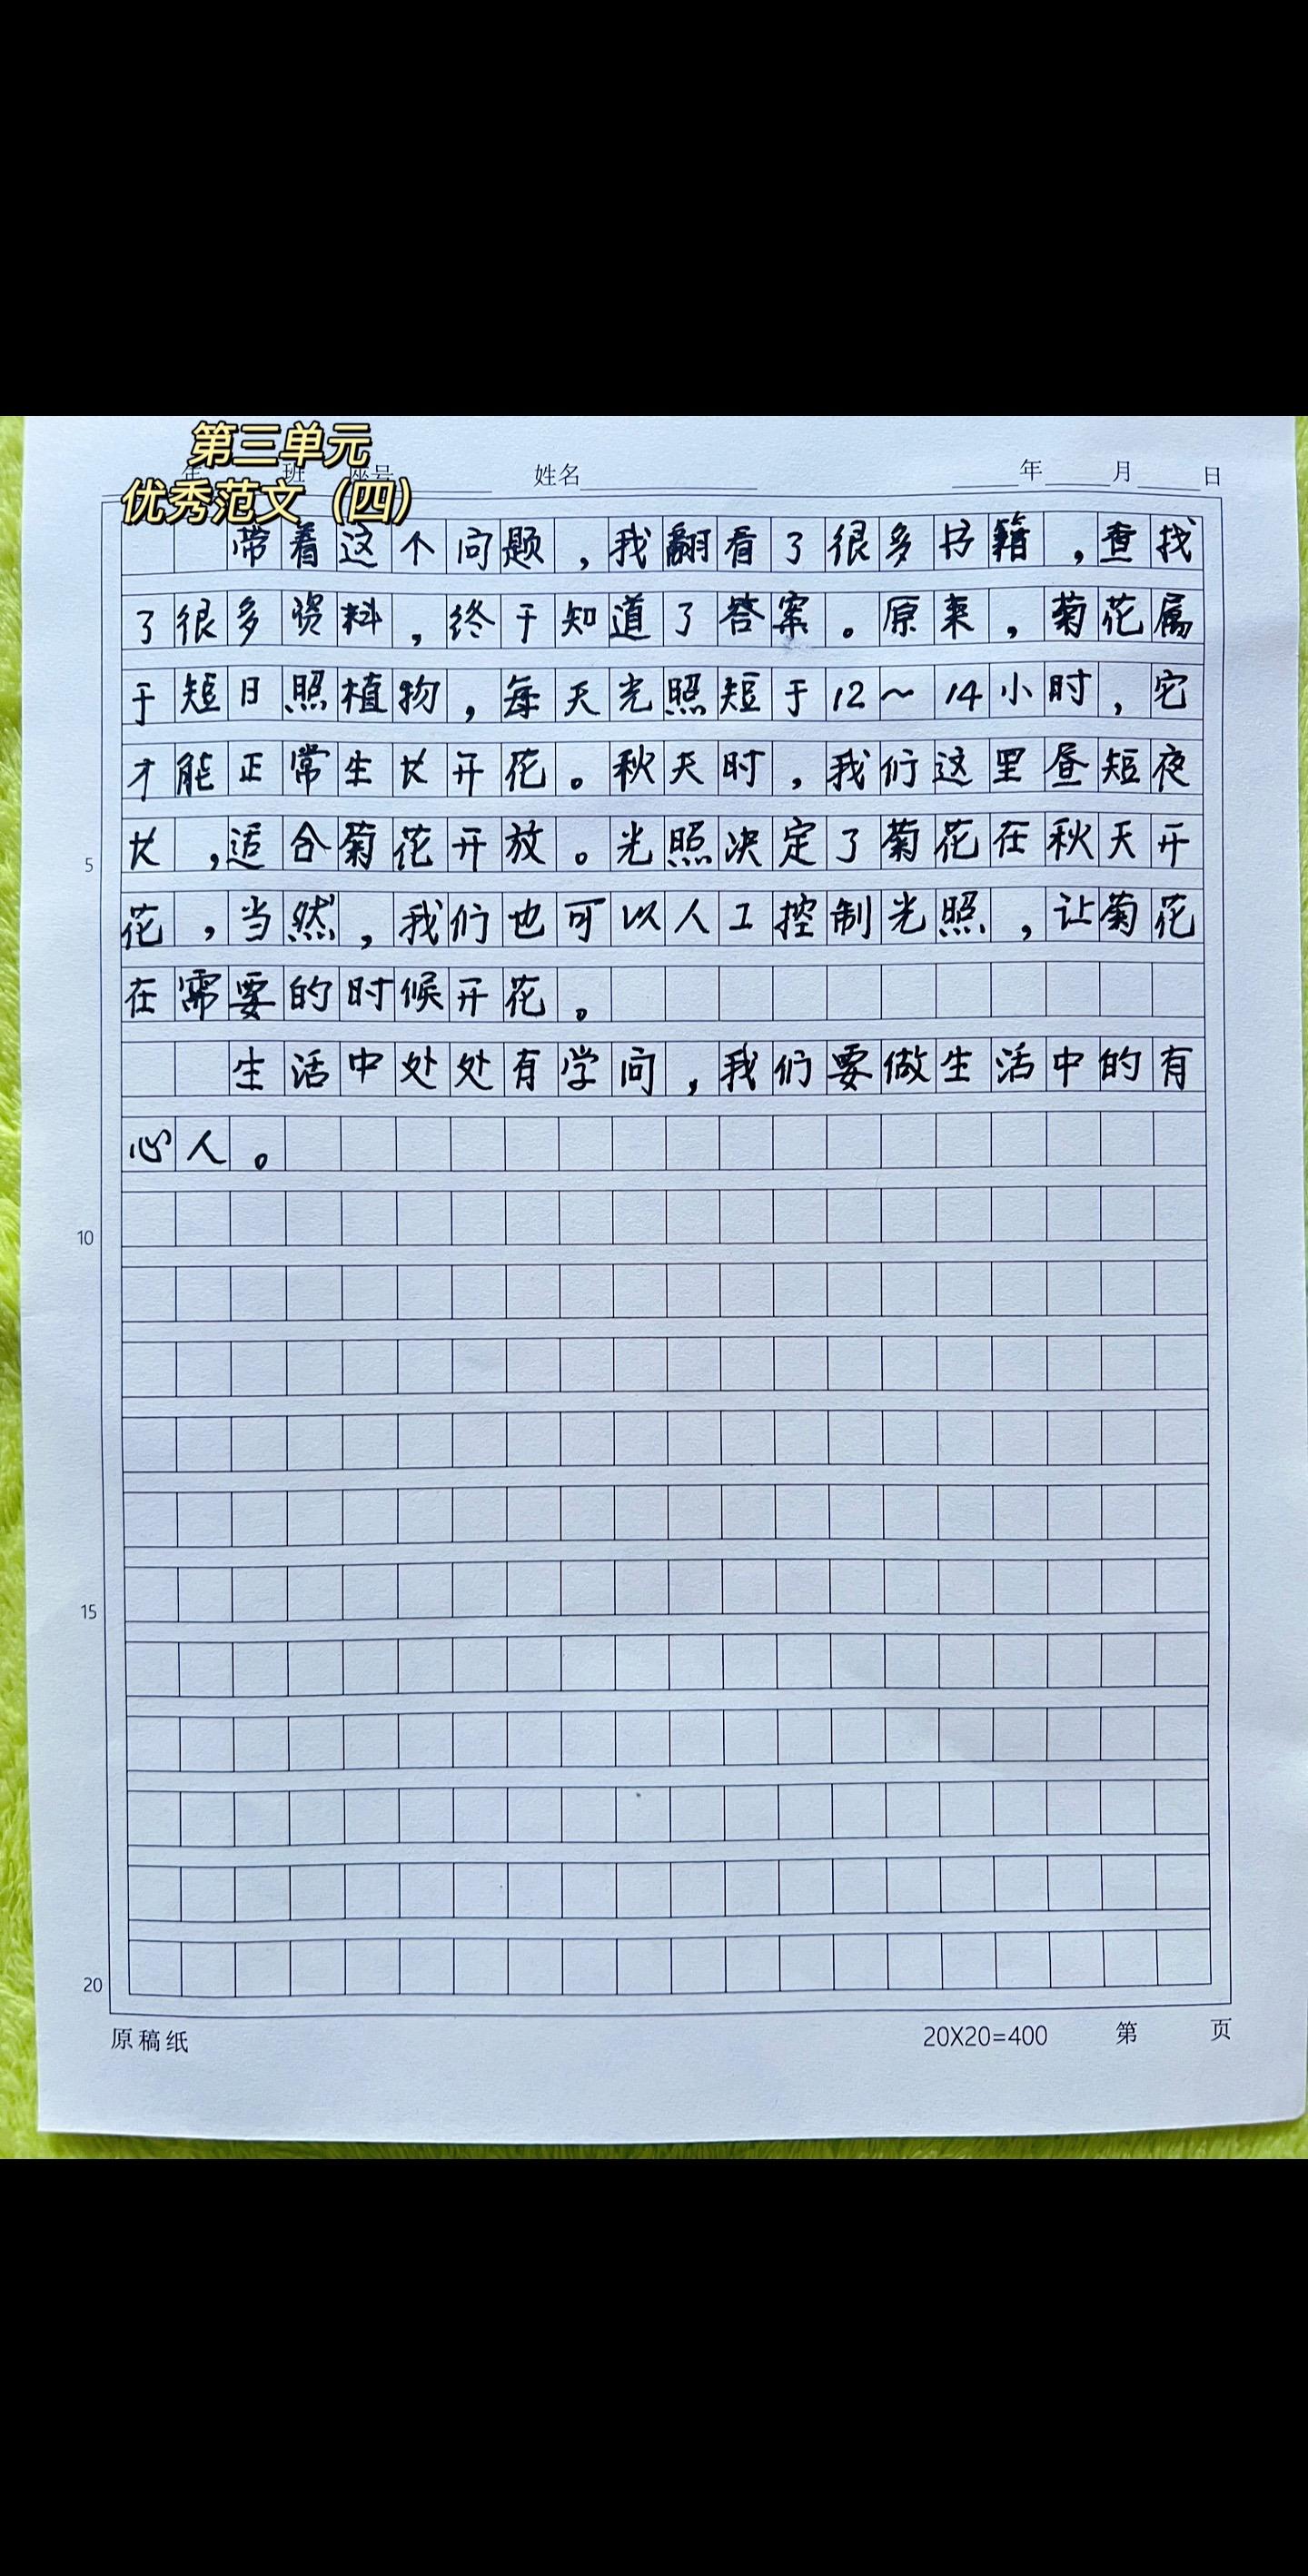 第三单元
优秀范文（四）
年 班 座号 姓名 年 月 日
带着这个问题，我翻看了很多书籍，查找
了很多资料，终于知道了答案。原来，菊花属
于短日照植物，每天光照短于12～14小时，它
才能正常生长开花。秋天时，我们这里昼短夜
长，适合菊花开放。光照决定了菊花在秋天开
5
花，当然，我们也可以人工控制光照，让菊花
在需要的时候开花。
生活中处处有学问，我们要做生活中的有
心人。
10
15
20
原稿纸 20X20=400 第 页